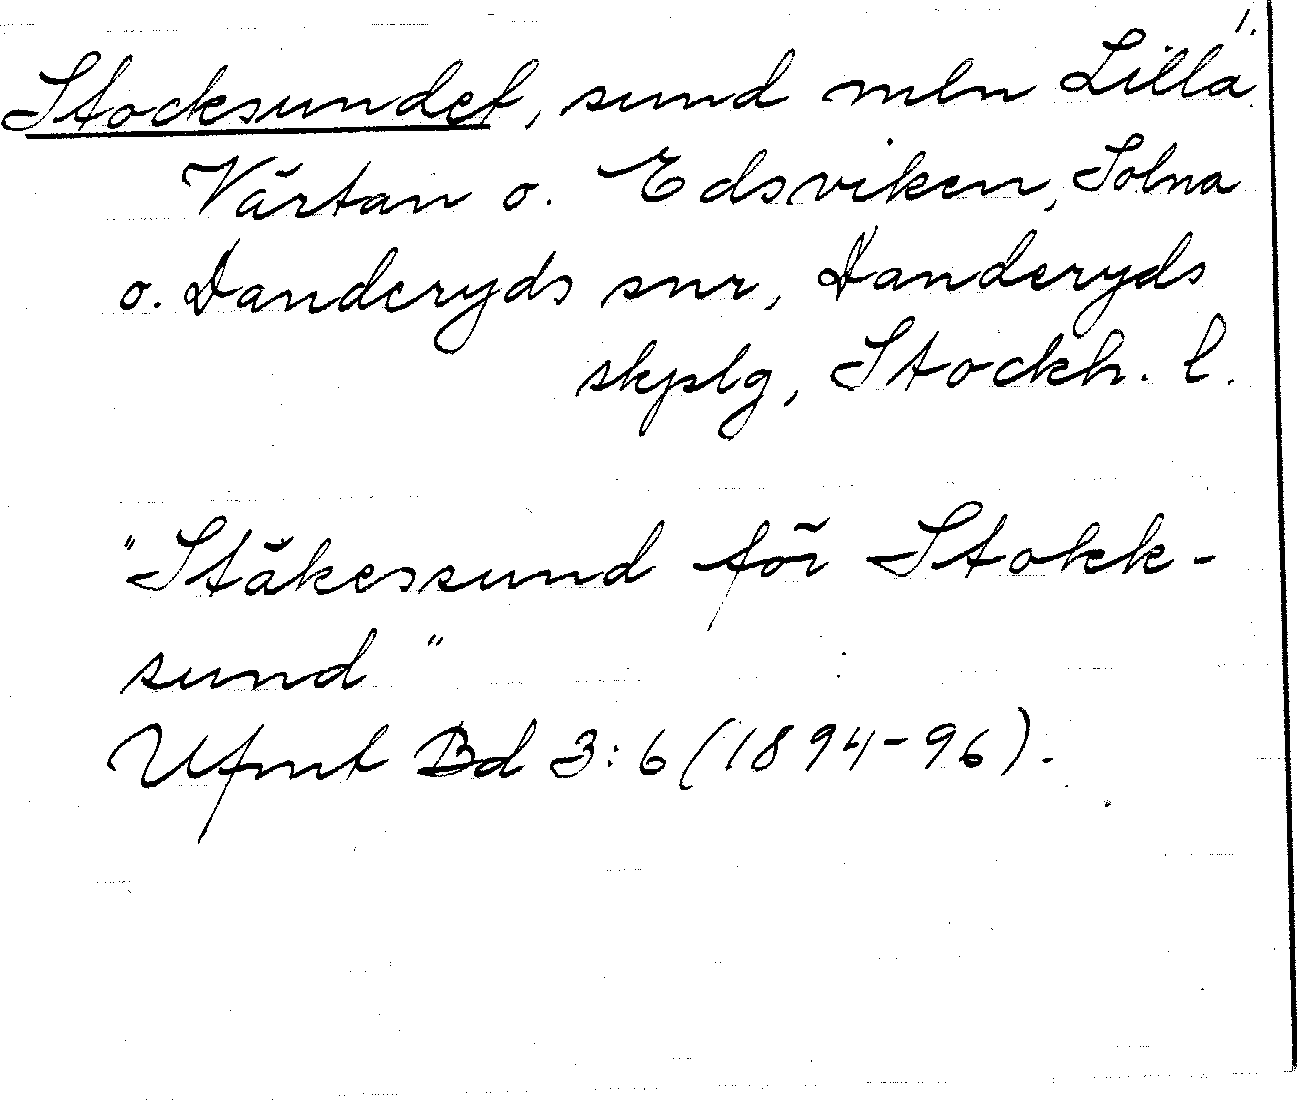 1.
Stocksundet, sund mln Lilla
Värtan o. Edsviken, Solna
o. Danderyds snr, Danderyds
skplg, Stockh. l.
"Stäkessund för Stokk-
sund"
Ufmt Bd 3:6 (1894-96).